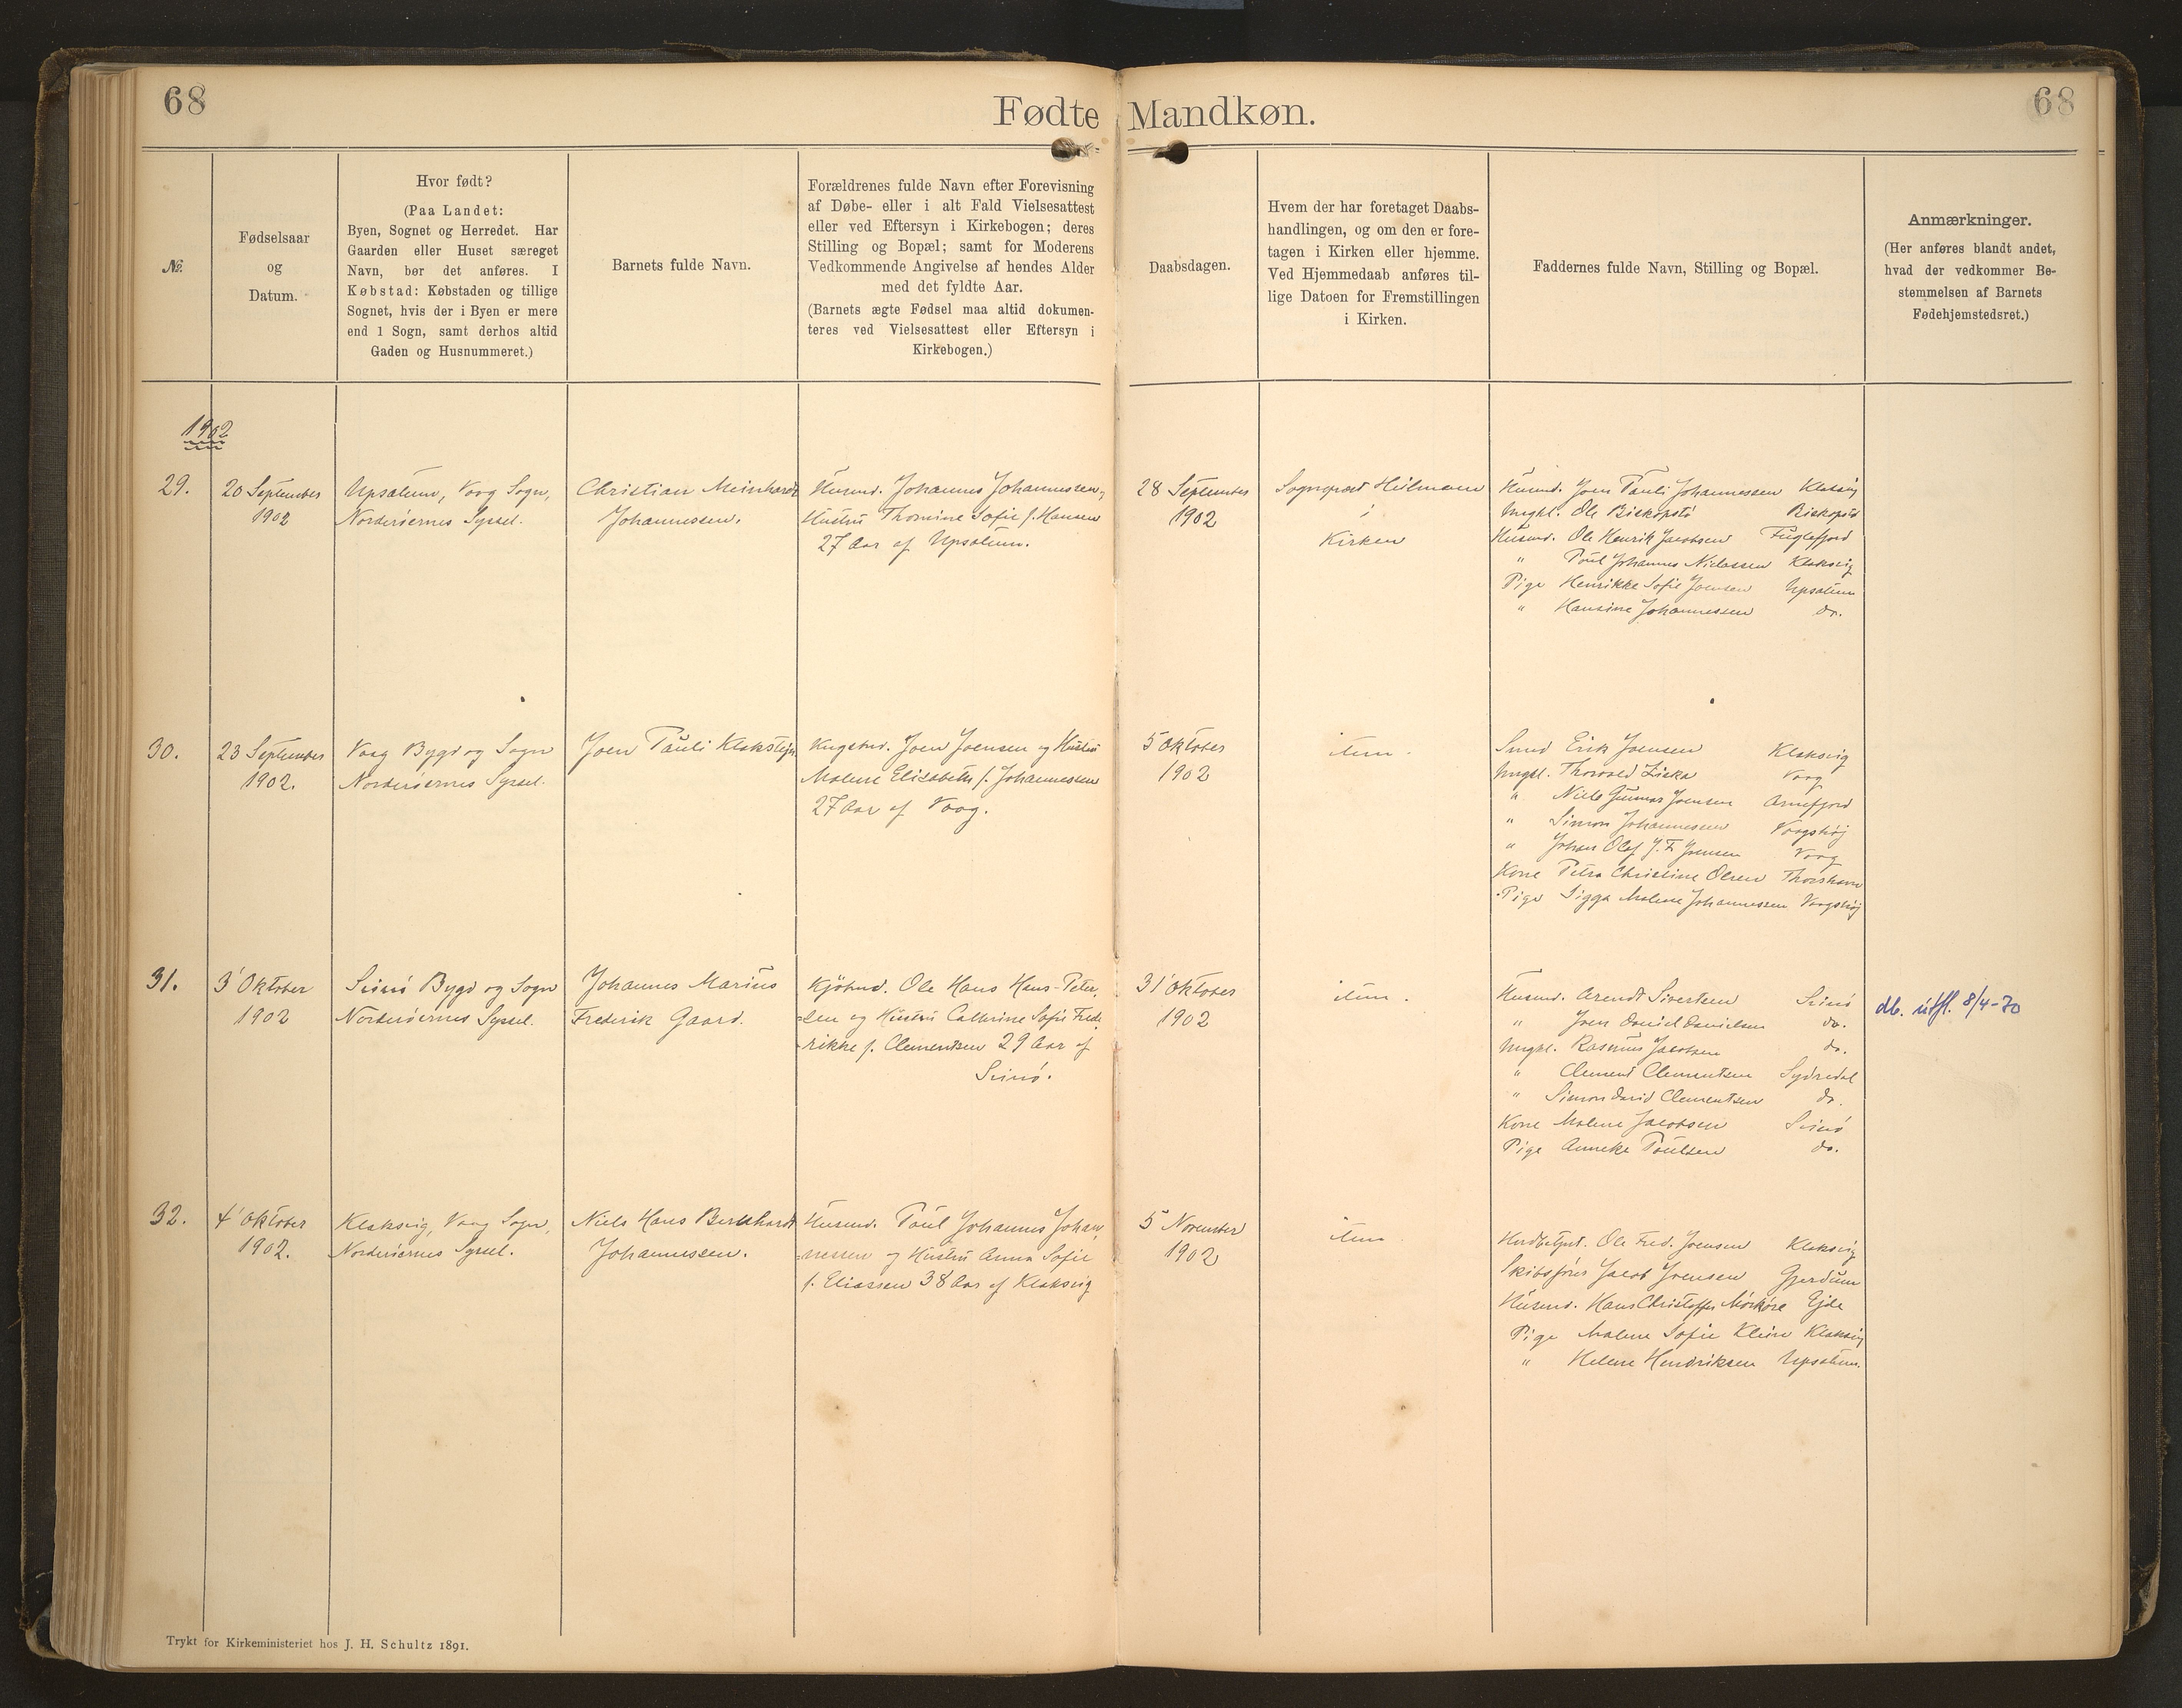 68
Fødte Mandkøn.
68
№
Fødselsaar
og
Datum.
Hvor født?
(Paa Landet:
Byen, Sognet og Herredet. Har
Gaarden eller Huset særeget
Navn, bør det anføres. I
Købstad: Købstaden og tillige
Sognet, hvis der i Byen er mere
end 1 Sogn, samt derhos altid
Gaden og Husnummeret.)
Barnets fulde Navn.
Forældrenes fulde Navn efter Forevisning
af Døbe- eller i alt Fald Vielsesattest
eller ved Eftersyn i Kirkebogen; deres
Stilling og Bopæl; samt for Moderens
Vedkommende Angivelse af hendes Alder
med det fyldte Aar.
(Barnets ægte Fødsel maa altid dokumen-
teres ved Vielsesattest eller Eftersyn i
Kirkebogen.)
Daabsdagen.
Hvem der har foretaget Daabs-
handlingen, og om den er fore-
tagen i Kirken eller hjemme.
Ved Hjemmedaab anføres til-
lige Datoen for Fremstillingen
i Kirken.
Faddernes fulde Navn, Stilling og Bopæl.
Anmærkninger.
(Her anføres blandt andet,
hvad der vedkommer Be-
stemmelsen af Barnets
Fødehjemstedsret.)
1902
29.
20 September
1902
Upsalum, Vaag Sogn,
Norderöernes Syssel.
Christian Meinhardt
Johannessen.
Husmd. Johannes Johannessen,
Hustru Thomine Sofie f. Hansen
27 Aar af Upsalum.
28 September
1902
Sognepræst Heilmann
i
Kirken
Husmd. Joen Pauli Johannessen Klaksvig
Ungkl. Ole Biskopstö Biskopstö
Husmd. Ole Henrik Jacobsen Fuglefjord
" Poul Johannes Niclassen Klaksvig
Pige Henrikke Sofie Joensen Upsalum
" Hansine Johannessen do.
30.
23 September
1902.
Vaag Bygd og Sogn
Norderöernes Syssel.
Joen Pauli Klakstejn
Kngsbmd. Joen Joensen og Hustru
Malene Elisabeth f. Johannessen
27 Aar af Vaag.
5 Oktober
1902
item.
Smed Erik Joensen Klaksvig
Ungkl. Thorvald Ziska Vaag
" Niels Gunnar Joensen Arnefjord
" Simon Johannessen Vaagshöj
" Johan Olaf J. F. Joensen Vaag
Kone Petra Christine Olsen Thorshavn
Pige Sigga Malene Johannessen Vaagshöj
31.
3' Oktober
1902
Svinö Bygd og Sogn
Norderöernes Syssel.
Johannes Marius
Frederik Gaard.
Kjöbmd. Ole Hans Hans-Peter-
sen og Hustru Cathrine Sofie Frede-
rikke f. Clementsen 29 Aar af
Svinö.
31' Oktober
1902
item.
Husmd. Arendt Sivertsen Svinö
" Joen Daniel Danielsen do.
Ungkl. Rasmus Jacobsen do.
" Clement Clementsen Sydredal
" Simon David Clementsen do.
Kone Malene Jacobsen Svinö
Pige Anneke Poulsen do.
db. útfl. 8/4-70
32.
4' Oktober
1902.
Klaksvig, Vaag Sogn,
Norderöernes Syssel.
Niels Hans Bernhardt
Johannessen.
Husmd. Poul Johannes Johan-
nessen og Hustru Anna Sofie
f. Eliassen 38 Aar af Klaksvig
5 November
1902
item
Ole Fred. Joensen Klaksvig
Skibsförer Jacob Joensen Gjerdum
Husmd. Hans Christoffer Mörköre Ejde
Pige Malene Sofie Klein Klaksvig
" Helene Hendriksen Upsalum.
Trykt for Kirkeministeriet hos J. H. Schultz 1891.